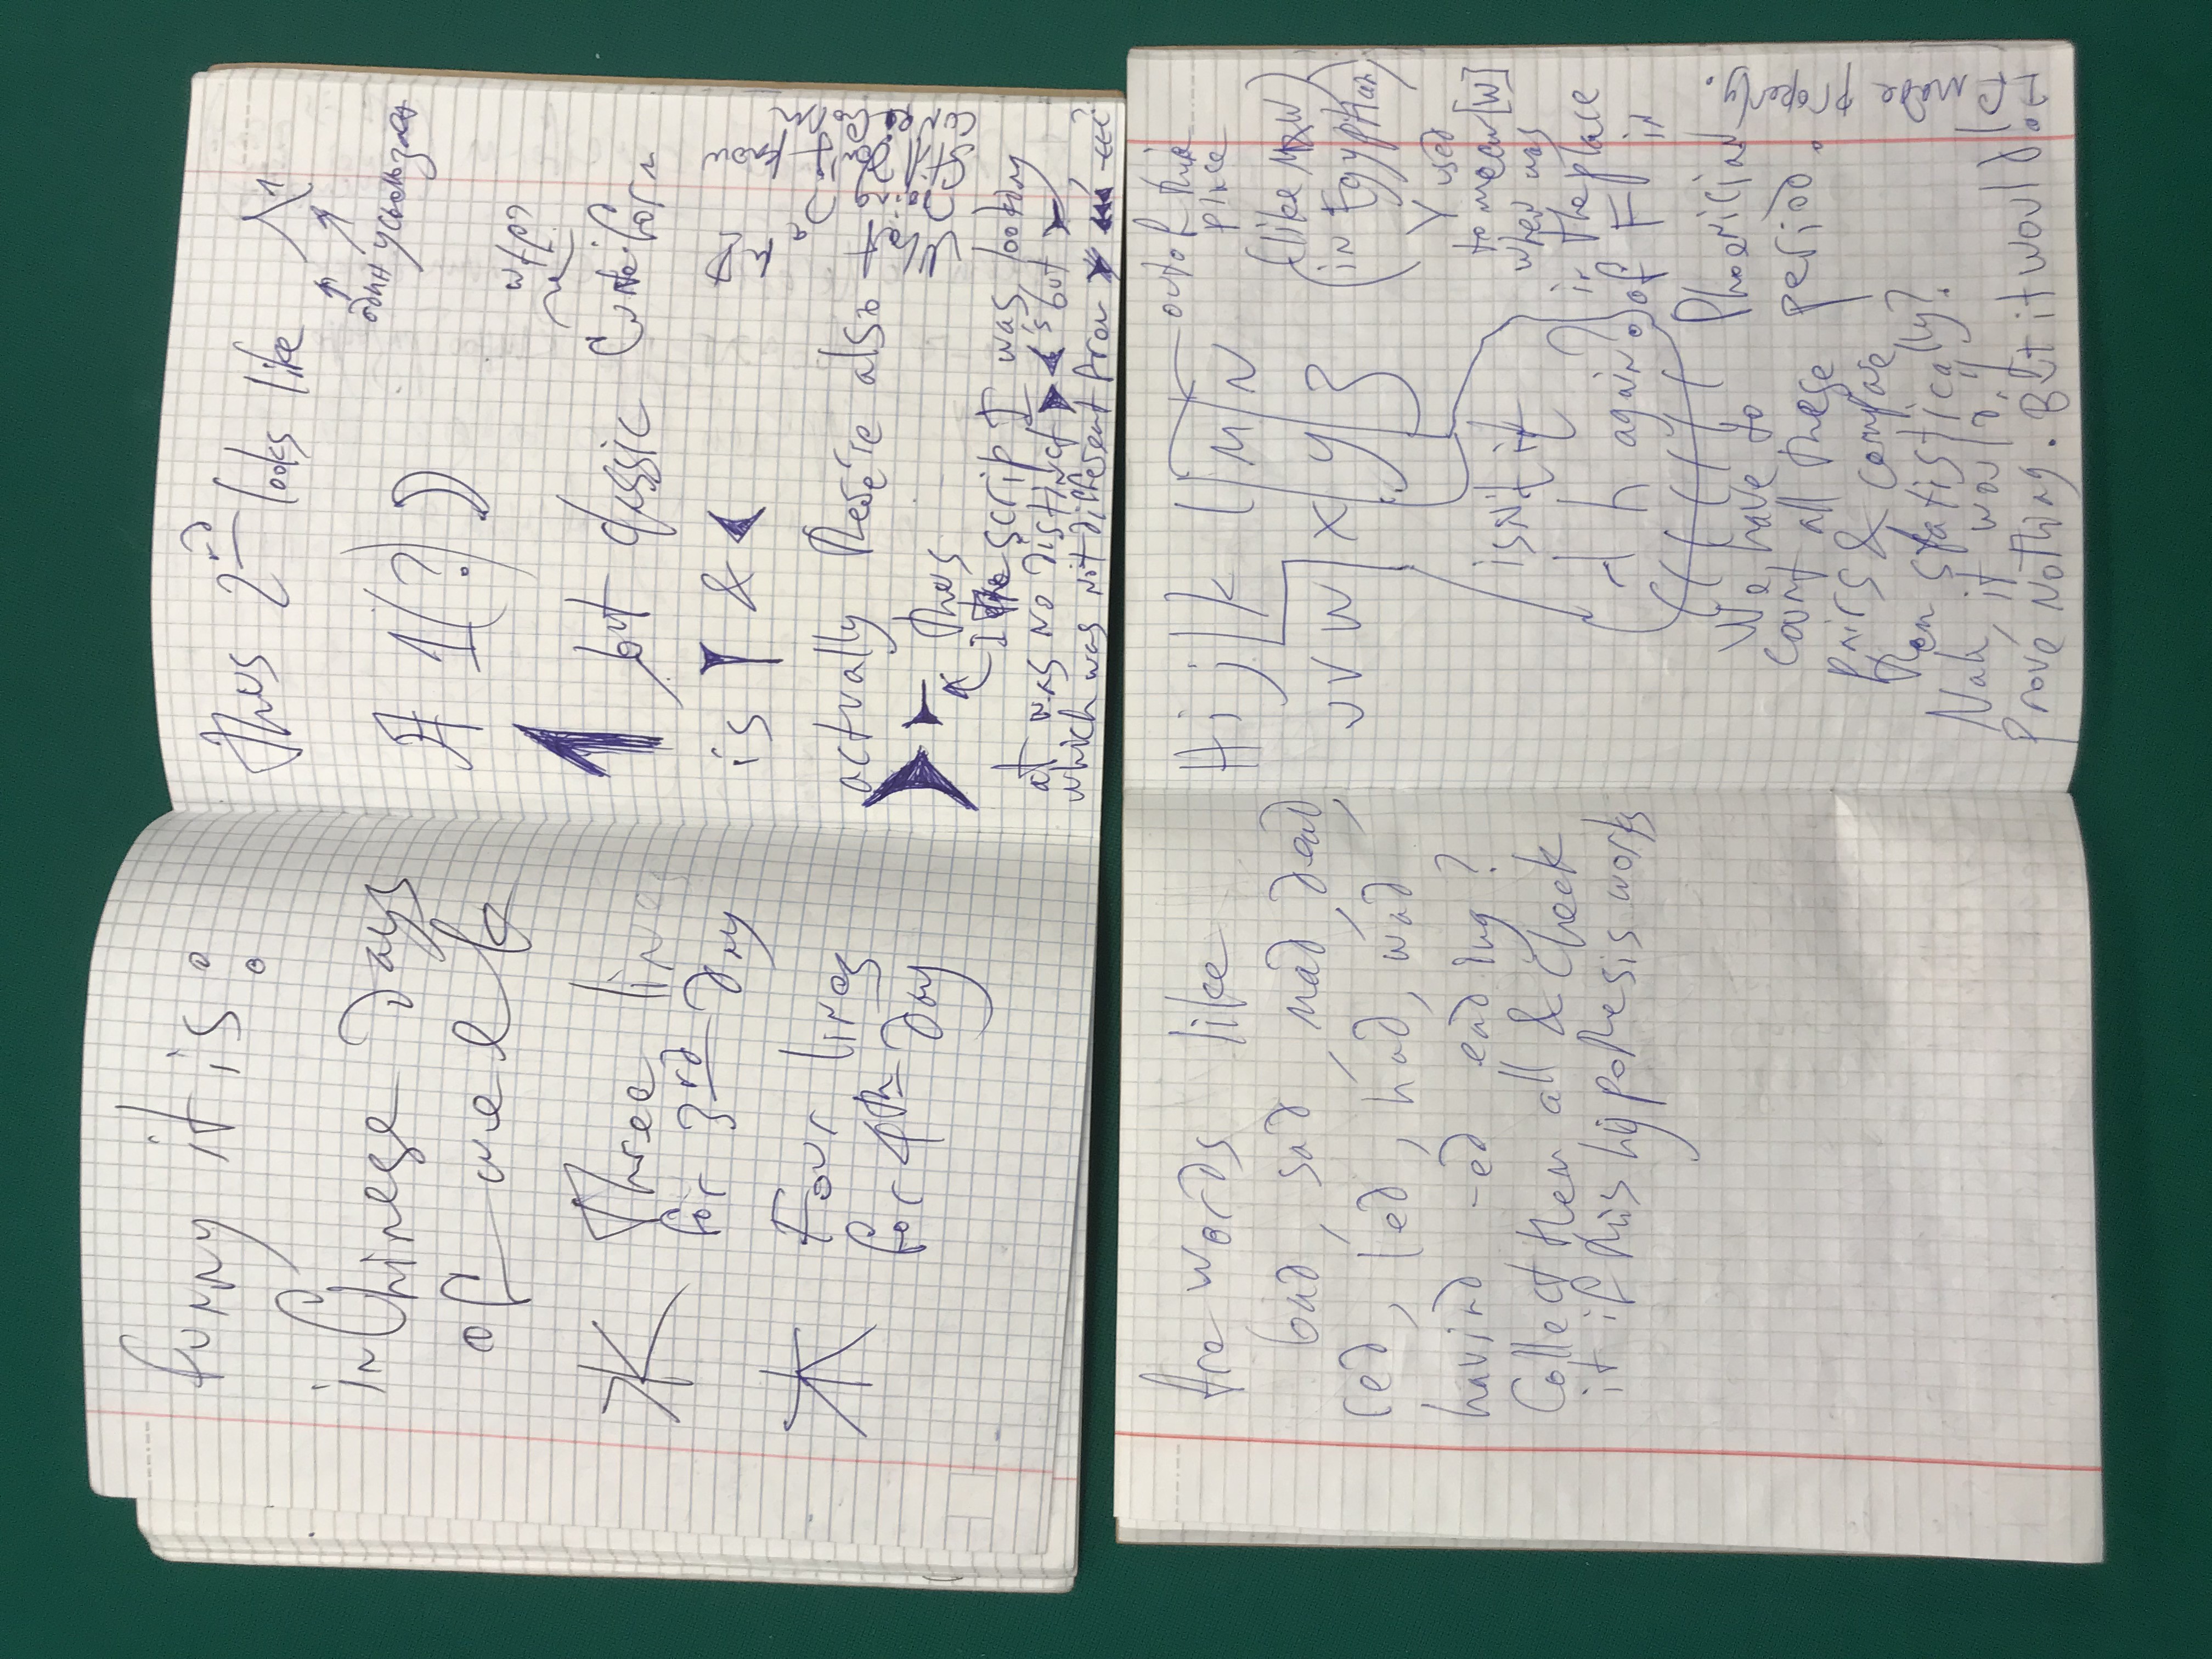 funny it is:
in Chinese days
of week
水 Three lines
for 3rd day
木 Four lines
for 4th day
Thus 2nd looks like 人1
один ускользает
A 1(?) D
wtf?
but classic Cuneiform
is &
actually there're also
thus
I the script I was looking
at was no distinct 's but
which was not different from
What a HP
doing?
Still don't know
cuneiform
Are words like
bad, sad, mad, dead,
red, led, had, wad
havind -ed ending?
Collect them all & check
it if this hypothesis works
H i j k l M N
U V W X Y Z
out of their
place
(like M&W
in Egyptian)
Y used
to mean [w]
when was
in the place
of F in
Phoenician
period.
isn't it
h again?
We have to
count all these
pairs & compare
them statistically?
Nah, it would
prove nothing. But it would!
If made properly.